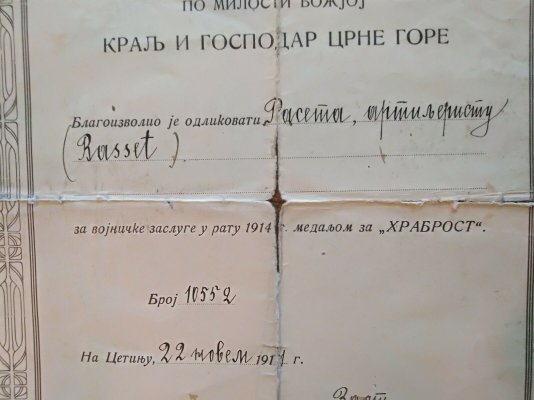 ПО МИЛОСТИ БОЖЈОЈ
КРАЉ И ГОСПОДАР ЦРНЕ ГОРЕ
Благоизволио је одликовати Расета, артиљеристу
(Rasset)
за војничке заслуге у рату 1914 г. медаљом за „ХРАБРОСТ“.
Број 10552
На Цетињу, 22 новем 1914 г.